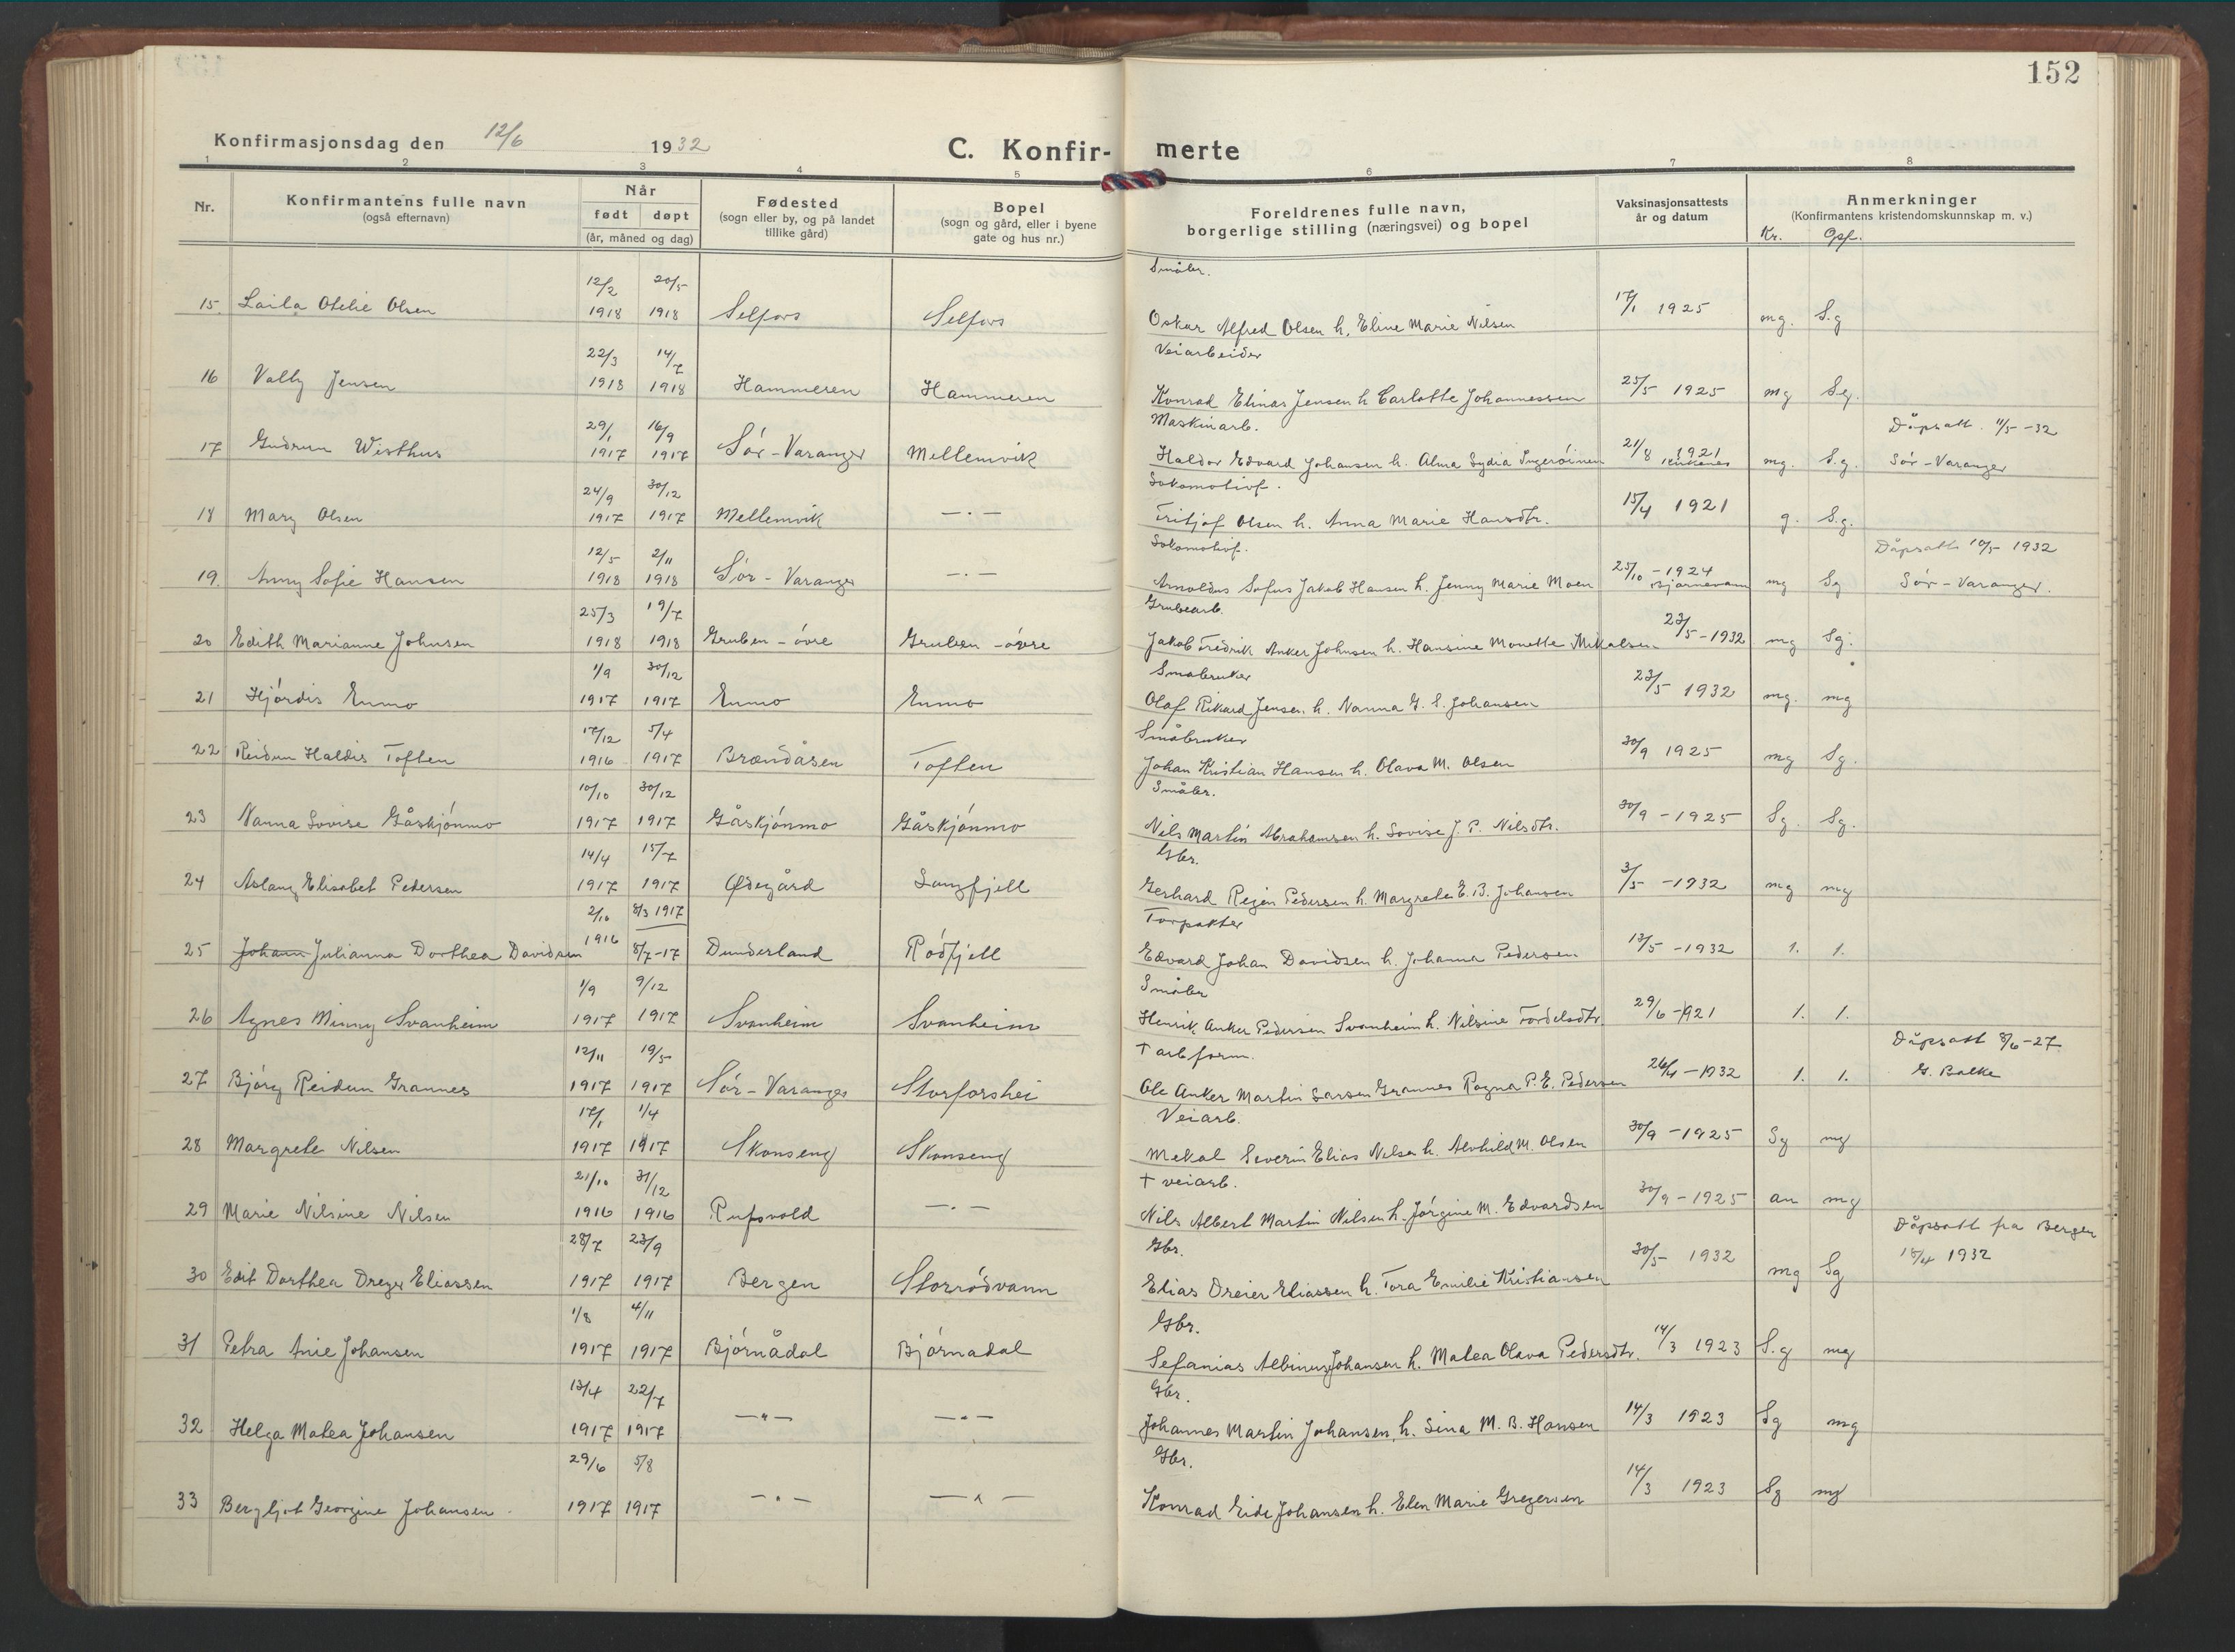 152
Konfirmasjonsdag den 12/6 1932
C. Konfir- merte
1 2 3 4 5 6 7 8
Nr.
Konfirmantens fulle navn
(også efternavn)
Når
født døpt
(år, måned og dag)
Fødested
(sogn eller by, og på landet
tillike gård)
Bopel
(sogn og gård, eller i byene
gate og hus nr.)
Foreldrenes fulle navn,
borgerlige stilling (næringsvei) og bopel
Vaksinasjonsattests
år og datum
Anmerkninger
(Konfirmantens kristendomskunnskap m. v.)
Kr. Opf.
12/2 20/5 Småbr.
15. Laila Otelie Olsen 1918 1918 Selfors Selfors Oskar Alfred Olsen h. Eline Marie Nilsen 17/1 1925 mg. S.g
22/3 14/7 Veiarbeider
16 Vally Jensen 1918 1918 Hammeren Hammeren Konrad Elinar Jensen h Carlotte Johannessen 25/5 1925 mg Sg.
29/1 16/9 Maskinarb. Dåpsatt. 11/5 -32
17 Gudrun Wisthus 1917 1917 Sør-Varanger Mellemvik Haldor Edvard Johansen h. Alma Lydia Ingerøinen 21/8 1921 Kirkenes mg. S.g. Sør-Varanger
24/9 30/12 Lokomotivf.
18 Mary Olsen 1917 1917 Mellemvik —·— Fritjof Olsen h. Anna Marie Hansdtr. 15/4 1921 g. S.g.
12/5 2/11 Lokomotivf. Dåpsatt 10/5 1932
19. Anny Sofie Hansen 1918 1918 Sør-Varanger —·— Arnoldus Sofus Jakob Hansen h. Jenny Marie Moen 25/10 -1924 Bjørnevann mg Sg Sør-Varanger.
25/3 19/7 Grubearb.
20 Edith Marianne Johnsen 1918 1918 Gruben-øvre Gruben-øvre Jakob Fredrik Anker Johnsen h. Hansine Monette Mikalsen 23/5-1932 mg Sg.
1/9 30/12 Småbruker
21 Hjørdis Enmo 1917 1917 Enmo Enmo Olaf Rikard Jensen h. Nanna G. S. Johansen 23/5 1932 mg. mg
17/12 5/4 Småbruker
22 Reidun Haldis Toften 1916 1917 Brændåsen Toften Johan Kristian Hansen h. Olava M. Olsen 30/9 1925 mg Sg.
10/10 30/12 Småbr.
23 Nanna Lovise Gåskjønmo 1917 1917 Gåskjønmo Gåskjønmo Nils Martin Abrahamsen h. Lovise J. P. Nilsdtr. 30/9 -1925 Sg. Sg.
14/4 15/7 Gbr.
24 Aslaug Elisabet Pedersen 1917 1917 Ødegård Langfjell Gerhard Regin Pedersen h. Margrete E. B. Johansen 3/5 -1932 mg mg
2/10 8/3 1917 Forpakter
25 Johann Julianna Dorthea Davidsen 1916 8/7-17 Dunderland Rødfjell Edvard Johan Davidsen h. Johanna Pedersen 13/5 -1932 1. 1.
1/9 9/12 Småbr
26 Agnes Minny Svanheim 1917 1917 Svanheim Svanheim Henrik Anker Pedersen Svanheim h. Nilsine Tordelsdtr. 29/6-1921 1. 1.
12/11 19/5 † arb.form. Dåpsatt 8/6-27
27 Bjørg Reidun Grannes 1917 1917 Sør-Varanger Storforshei Ole Anker Martin Larsen Grannes Ragna P. E. Pedersen 26/4-1932 1. 1. G. Balke
17/1 1/4 Veiarb.
28 Margrete Nilsen 1917 1917 Skonseng Skonseng Mekal Severin Elias Nilsen h. Alvhild M. Olsen 30/9 -1925 Sg mg
21/10 31/12 † veiarb.
29 Marie Nilsine Nilsen 1916 1916 Rufsvold —·— Nils Albert Martin Nilsen h. Jørgine M. Edvardsen 30/9-1925 an mg
28/7 23/9 Gbr. Dåpsatt fra Bergen
30 Edit Dorthea Dreyer Eliassen 1917 1917 Bergen Storrødvann Elias Dreier Eliassen h. Tora Emilie Kristiansen 30/5 1932 mg Sg 18/4 1932
1/8 4/11 Gbr.
31 Petra Anie Johansen 1917 1917 Bjørnådal Bjørnadal Sefanias Albinus Johansen h. Malea Olava Pedersdtr. 14/3 1923 S.g mg
13/4 22/7 Gbr.
32 Helga Malea Johansen 1917 1917 —"— —"— Johannes Martin Johansen, h. Lina M. B. Hansen 14/3 1923 Sg mg
29/6 5/8 Gbr.
33 Bergljot Georgine Johansen 1917 1917 —"— —"— Konrad Eide Johansen h. Elen Marie Gregersen 14/3 1923 Sg mg